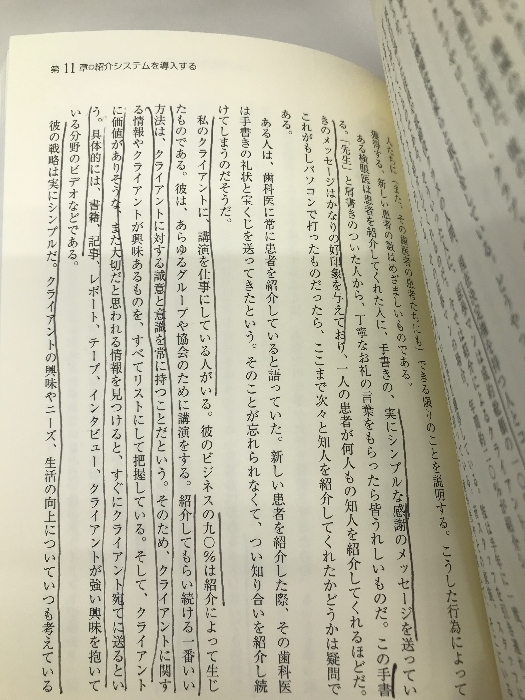 第11章●紹介システムを導入する
できる限りのことを説明する。こうした行為によって
獲得する、新しい患者の数はめざましいものである。
ある検眼医は患者を紹介してくれた人に、手書きの、実にシンプルな感謝のメッセージを送ってい
る。「先生」と肩書きのついた人から、丁寧なお礼の言葉をもらったら皆うれしいものだ。この手書
きのメッセージはかなりの好印象を与えており、一人の患者が何人もの知人を紹介してくれるほどだ。
これがもしパソコンで打ったものだったら、ここまで次々と知人を紹介してくれたかどうかは疑問で
ある。
ある人は、歯科医に常に患者を紹介していると語っていた。新しい患者を紹介した際、その歯科医
は手書きの礼状と宝くじを送ってきたという。そのことが忘れられなくて、つい知り合いを紹介し続
けてしまうのだそうだ。
私のクライアントに、講演を仕事にしている人がいる。彼のビジネスの九〇％は紹介によって生じ
たものである。彼は、あらゆるグループや協会のために講演をする。紹介してもらい続ける一番いい
方法は、クライアントに対する誠意と意識を常に持つことだという。そのため、クライアントに関す
る情報やクライアントが興味あるものを、すべてリストにして把握している。そして、クライアント
に価値がありそうな、また大切だと思われる情報を見つけると、すぐにクライアント宛てに送るとい
う。具体的には、書籍、記事、レポート、テープ、インタビュー、クライアントが強い興味を抱いて
いる分野のビデオなどである。
彼の戦略は実にシンプルだ。クライアントの興味やニーズ、生活の向上についていつも考えている